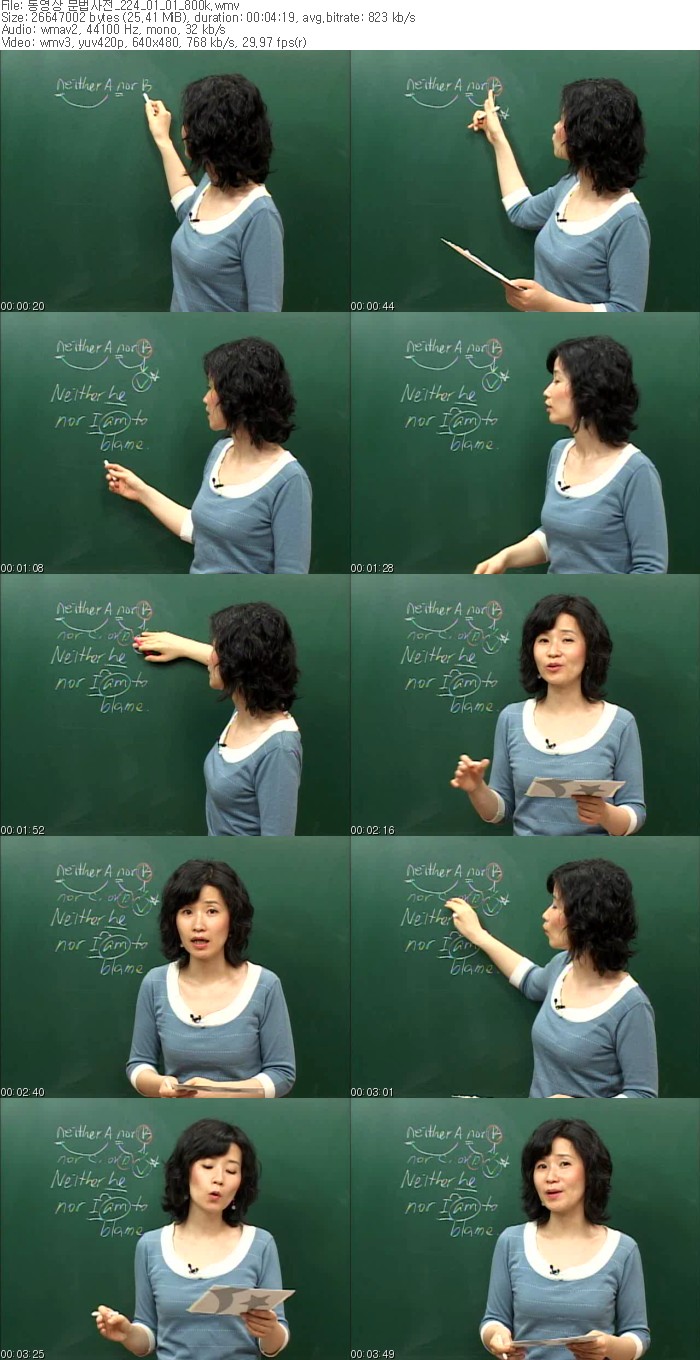 File: 동영상 문법사전_224_01_01_800k.wmv
Size: 26647002 bytes (25.41 MiB), duration: 00:04:19, avg.bitrate: 823 kb/s
Audio: wmav2, 44100 Hz, mono, 32 kb/s
Video: wmv3, yuv420p, 640x480, 768 kb/s, 29.97 fps(r)
neither A nor B
00:00:20
neither A nor B
00:00:44
neither A nor B
V
Neither he
nor I am to
blame.
00:01:08
neither A nor B
V
Neither he
nor I am to
blame.
00:01:28
neither A nor B
nor
Neither he
nor I am to
blame.
00:01:52
neither A nor B
nor
V
Neither he
nor I am to
blame.
00:02:16
neither A nor B
nor
V
Neither he
nor I am to
blame.
00:02:40
neither A nor B
nor
V
Neither
nor I am
blame.
00:03:01
neither A nor B
nor
V
Neither he
nor I am to
blame.
00:03:25
neither A nor B
nor
V
Neither he
nor I am to
blame.
00:03:49